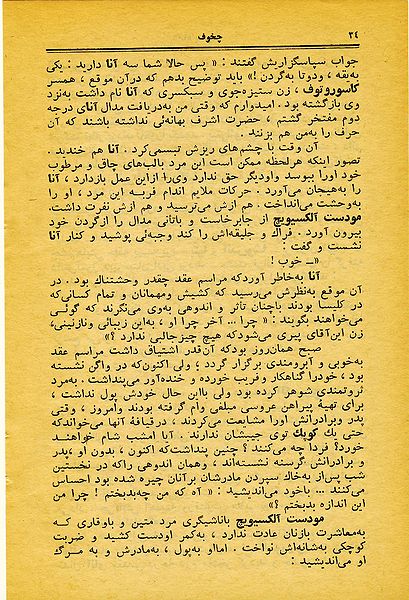 ۲۴ چخوف
جواب سپاسگزاریش گفتند : « پس حالا شما سه آنا دارید : یکی
به‌یقه ، ودوتا به‌گردن !» باید توضیح بدهم که‌درآن موقع ، همسر
کاسوروتوف ، زن ستیزه‌جوی و سبکسری که آنا نام داشت به‌نزد
وی بازگشته بود . امیدوارم که وقتی من به‌دریافت مدال آنای درجه
دوم مفتخر گشتم ، حضرت اشرف بهانه‌ئی نداشته باشند که آن
حرف را به‌من هم بزنند .
آن وقت با چشم‌های ریزش تبسمی‌کرد . آنا هم خندید .
تصور اینکه هرلحظه ممکن است این مرد بالب‌های چاق و مرطوب
خود اورا ببوسد واودیگر حق ندارد وی‌را ازاین عمل بازدارد ، آنا
را به‌هیجان می‌آورد . حرکات ملایم اندام فربه این مرد ، او را
به‌وحشت می‌انداخت . هم ازش می‌ترسید و هم ازش نفرت داشت.
مودست آلکسیویچ از جابرخاست و باتأنی مدال را ازگردن خود
بیرون آورد . فراك و جلیقه‌اش را کند وجبه‌ئی پوشید و کنار آنا
نشست و گفت :
«ـ خوب !
آنا به‌خاطر آوردکه مراسم عقد چقدر وحشتناك بود . در
آن موقع به‌نظرش می‌رسید که کشیش ومهمانان و تمام کسانی‌که
در کلیسا بودند باچنان تأثر و اندوهی به‌وی می‌نگرند که گوئی
می‌خواهند بگویند : « چرا ... آخر چرا او ، به‌این زیبائی ونازنینی،
زن این‌آقای پیری می‌شودکه هیچ چیزجالبی ندارد ؟»
صبح همان‌روز بودکه آن‌قدر اشتیاق داشت مراسم عقد
به‌خوبی و آبرومندی برگزار گردد ، ولی اکنون‌که در واگن نشسته
بود ، خودرا گناهکار وفریب خورده و خنده‌آور می‌پنداشت . به‌مرد
ثروتمندی شوهر کرده بود ولی بااین حال خودش پول نداشت .
برای تهیهٔ پیراهن عروسی مبلغی وام گرفته بودند وامروز ، وقتی
پدر وبرادرانش اورا مشایعت می‌کردند ، درقیافهٔ آنها می‌خواندکه
حتی یك کوپك توی جیبشان ندارند . آیا امشب شام خواهند
خورد؟ فردا چه می‌کنند ؟ چنین پنداشت‌که اکنون ، بدون او ،پدر
و برادرانش گرسنه نشسته‌اند ، وهمان اندوهی راکه در نخستین
شب پس‌از به‌خاك سپردن مادرشان برآنان چیره شده بود احساس
می‌کنند ... باخود می‌اندیشید : « آه که من چه‌بدبختم ! چرا من
این اندازه بدبختم ؟»
مودست آلکسیویچ باناشیگری مرد متین و باوقاری کـه
به‌معاشرت بازنان عادت ندارد ، به‌کمر اودست کشید و ضربت
کوچکی به‌شانه‌اش نواخت . امااو به‌پول ، به‌مادرش و به مـرگ
او می‌اندیشید :